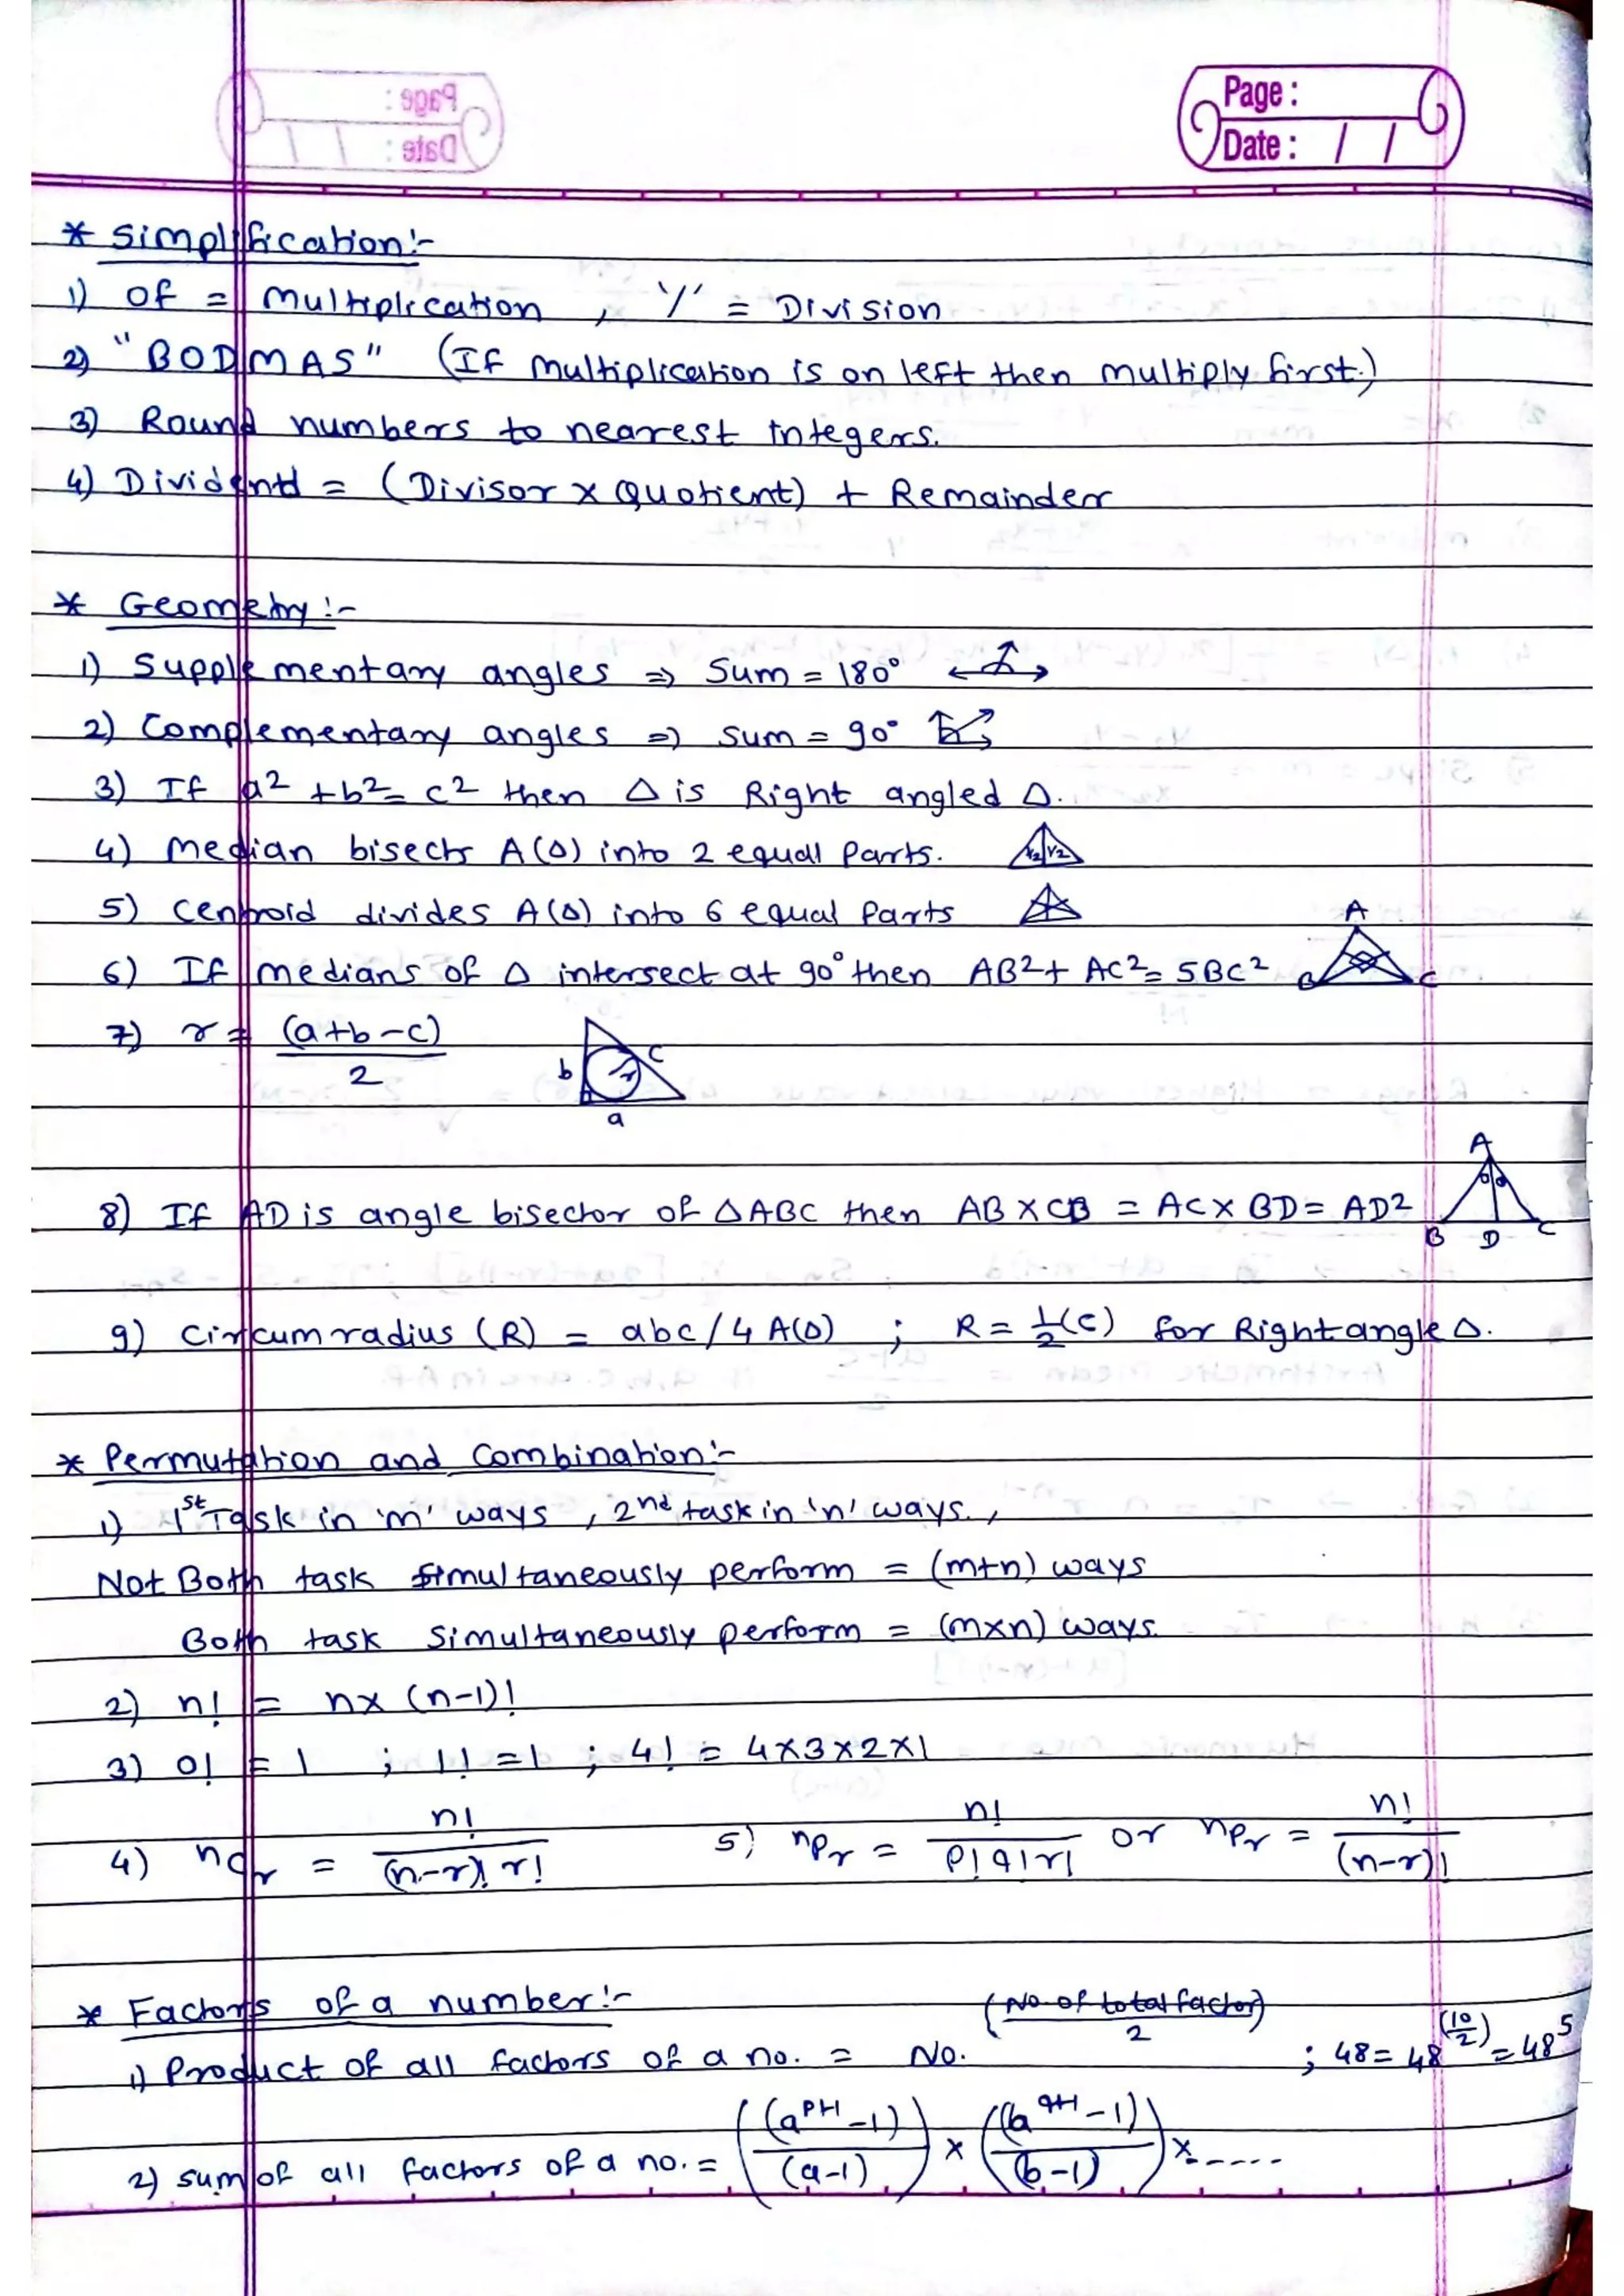 Page :
Date : / /
* Simplification:-
1) Of = Multiplication , '/' = Division
2) "BODMAS" (If Multiplication is on left then multiply first.)
3) Round numbers to nearest integers.
4) Dividend = (Divisor × Quotient) + Remainder
* Geometry :-
1) Supplementary angles ⇒ Sum = 180°
2) Complementary angles ⇒ Sum = 90°
3) If a² + b² = c² then △ is Right angled △.
4) Median bisects A(△) into 2 equal Parts. 1/2 1/2
5) Centroid divides A(△) into 6 equal Parts
6) If medians of △ intersect at 90° then AB² + AC² = 5BC² A B C
7) r = (a+b-c)/2 b c r a
8) If AD is angle bisector of △ABC then AB × CD = AC × BD = AD² A B D C
9) Circumradius (R) = abc/4 A(△) ; R = 1/2(c) for Right angle △.
* Permutation and Combination:-
1) 1st Task in 'm' ways , 2nd task in 'n' ways. ,
Not Both task simultaneously perform = (m+n) ways
Both task simultaneously perform = (m×n) ways.
2) n! = n× (n-1)!
3) 0! = 1 ; 1! = 1 ; 4! = 4×3×2×1
4) nCr = n!/(n-r)! r! 5) nPr = n!/P!q!r! or nPr = n!/(n-r)!
* Factors of a number:-
1) Product of all factors of a no. = No. (No. of total factor)/2 ; 48 = 48^(10/2) = 48^5
2) sum of all factors of a no. = ((a^(P+1) -1)/(a-1)) × ((b^(q+1) -1)/(b-1)) ×.-----